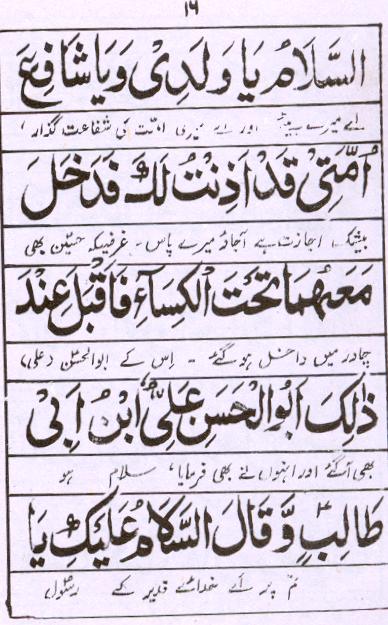 ۱۶
السَّلَامُ يَا وَلَدِىْ وَيَا شَافِعَ
اے میرے بیٹے اور اے میری امّت کی شفاعت گذار،
اُمَّتِىْ قَدْ اَذِنْتُ لَكَ فَدَخَلَ
بیشک اجازت ہے آجاؤ میرے پاس۔ غرضیکہ حسینؑ بھی
مَعَهُمَا تَحْتَ الْكِسَآءِ فَاَقْبَلَ عِنْدَ
چادر میں داخل ہو گئے ۔ اس کے ابوالحسن (علی)
ذٰلِكَ اَبُوالْحَسَنِ عَلِىُّ ابْنُ اَبِىْ
بھی آ گئے اور انہوں نے بھی فرمایا، سلام ہو
طَالِبٍ وَّقَالَ السَّلَامُ عَلَيْكَ يَا
تم پر اے خدائے قدیر کے رسولؐ،